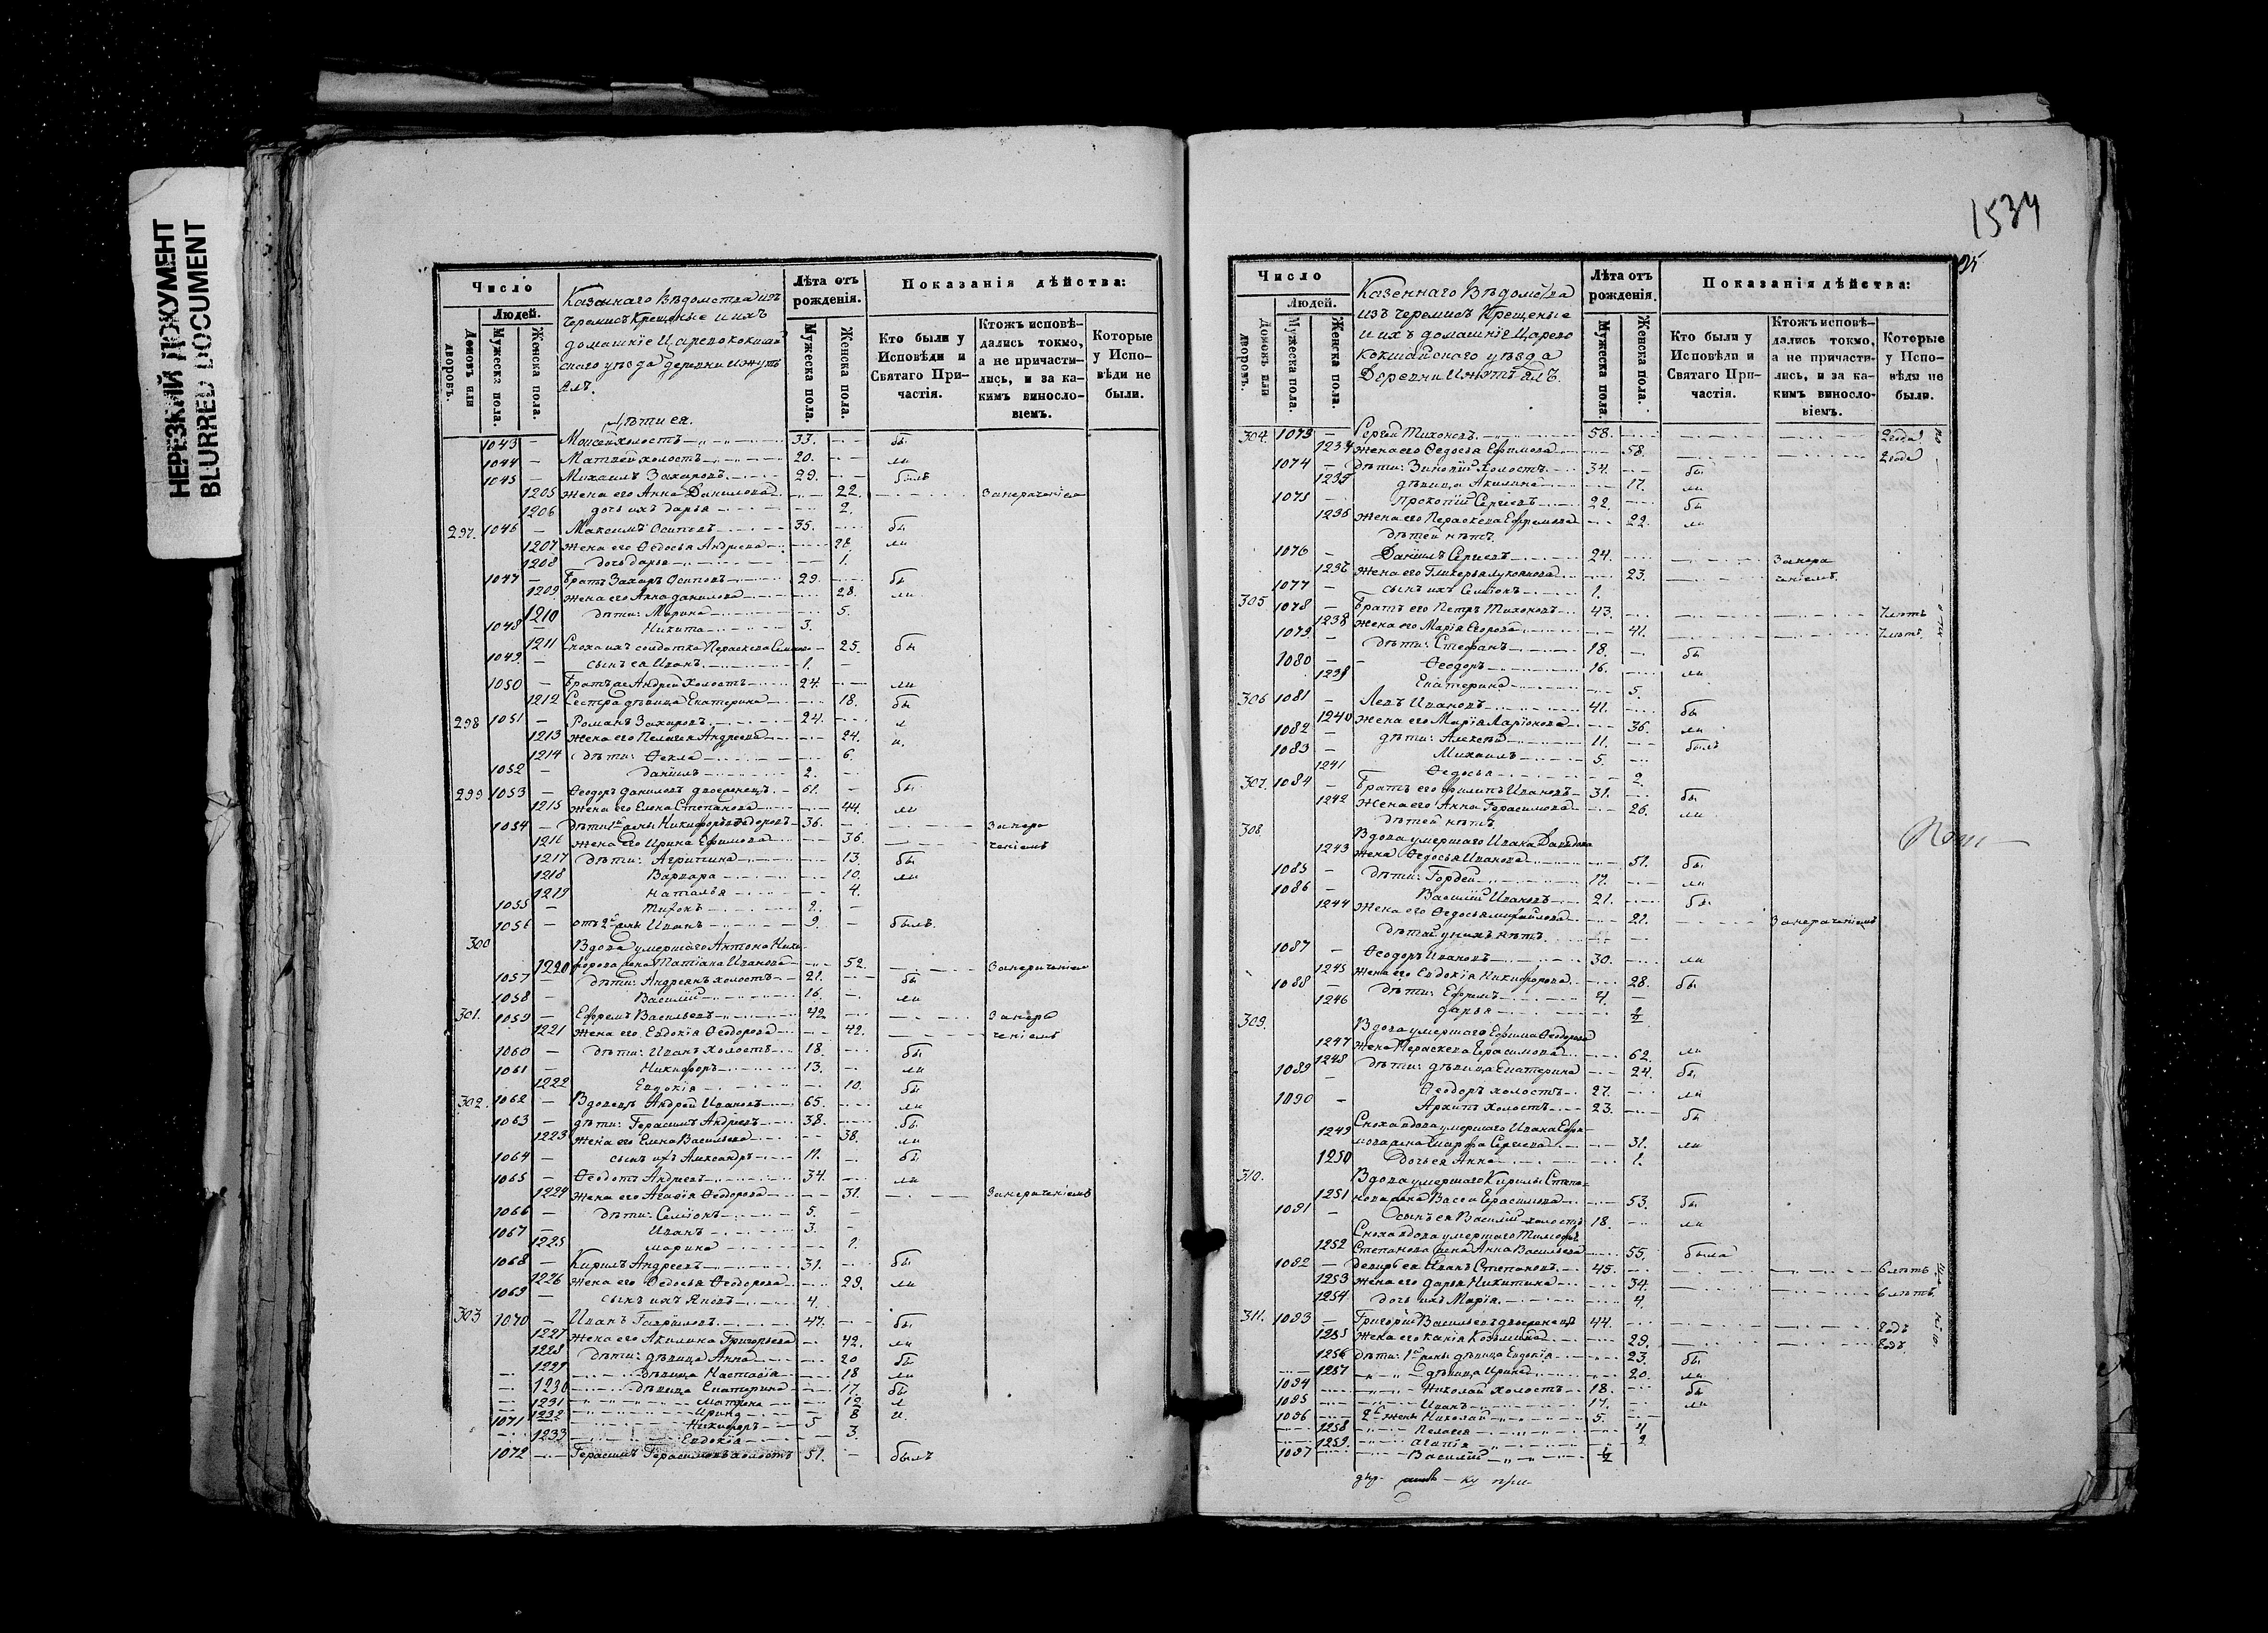 НЕРЕЗКИЙ ДОКУМЕНТ
BLURRED DOCUMENT
Число
Людей.
Домовъ или дворовъ.
Мужеска пола.
Женска пола.
Казеннаго Вѣдомства изъ
Черемисъ Крещеные и ихъ
домашніе Царевококшай
скаго уѣзда деревни Ижуть
ялъ.
Лѣта отъ рожденія.
Мужеска пола.
Женска пола.
Показанія дѣйства:
Кто были у Исповѣди и Святаго Причастія.
Ктожъ исповѣдались токмо, а не причастились, и за какимъ винословіемъ.
Которые у Исповѣди не были.
дѣти ея.
1043 — Моисей холостъ 33. бы
1044 — Матвей холостъ 20. ли
1045 — Михаилъ Захаровъ 29. былъ
1205 жена его Анна Данилова 22.
1206 дочь ихъ Дарья 2.
297. 1046 — Максимъ Осиповъ 35. бы
1207 жена его Ѳедосья Андреева 28. ли
1208 дочь Дарья 1.
1047 — Братъ Захаръ Осиповъ 29. бы
1209 жена его Анна Данилова 28. ли
1210 дѣти: Марина 5.
1048 — Никита 3.
1211 Сноха ихъ солдатка Параскева 25. бы
1049 — сынъ ея Иванъ 1. —
1050 — Братъ ея Андрей холостъ 24. ли
1212 Сестра дѣвица Екатерина 18. бы
298 1051 — Романъ Захаровъ 24. л
1213 жена его Пелагея Андреева 24. и.
1214 дѣти: Ѳекла 6.
1052 — Даніилъ 2.
299 1053 — Ѳеодоръ Даниловъ двоеженецъ 61. бы
1215 жена его Елена Степанова 44. ли
1054 — дѣти 1й жены Никифоръ Ѳедоровъ 36.
1216 жена его Ирина Ефимова 36.
1217 дѣти: Агрипина 13. бы
1218 Варвара 10. ли
1219 Наталья 4.
1055 — Тихонъ 2. —
1056 — отъ 2й жены Иванъ 9. — былъ.
300 Вдова умершаго Антона Ники-
1220 форова жена Татіана Иванова 52.
1057 — дѣти: Андреянъ холостъ 21. бы
1058 — Василій 16. ли
301. 1059 — Ефремъ Васильевъ 42
1221 жена его Евдокія Ѳеодорова 42.
1060 — дѣти: Иванъ холостъ 18. бы
1061 Никифоръ 13. ли
1222 Евдокія 10. бы
302. 1062 — Вдовецъ Андрей Ивановъ 65. ли
1063 — дѣти: Герасимъ Андреевъ 38. бы
1223 жена его Елена Васильева 38. ли
1064 — сынъ ихъ Александръ 11. бы
1065 — Ѳеодотъ Андреевъ 34. ли
1224 жена его Агафія Ѳеодорова 31.
1066 — дѣти: Семіонъ 5. —
1067 — Иванъ 3. —
1225 Марина 2.
1068 — Кирилъ Андреевъ 31. бы
1226 жена его Ѳедосья Ѳеодорова 29. ли
1069 — сынъ ихъ Яковъ 4.
303 1070 — Иванъ Гавриловъ 47. бы
1227 жена его Акилина Григорьева 42. ли
1228 дѣти: дѣвица Анна 20 бы
1229 дѣвица Настасія 18 ли
1230 дѣвица Екатерина 17. бы
1231 Матрона 12 л
1232 Ирина 8 и.
1071 Никифоръ 5
1233 Евдокія 3.
1072 Герасимъ Герасимовъ холостъ 51. — былъ
1534
Число
Людей.
Домовъ или дворовъ.
Мужеска пола.
Женска пола.
Казеннаго Вѣдомства
изъ черемисъ Крещеные
и ихъ домашніе Царево
кокшайскаго уѣзда
Деревни Ижутъ ялъ.
Лѣта отъ рожденія.
Мужеска пола.
Женска пола.
Показанія дѣйства:
Кто были у Исповѣди и Святаго Причастія.
Ктожъ исповѣдались токмо, а не причастились, и за какимъ винословіемъ.
Которые у Исповѣди не были.
304. 1073 — Сергей Тихоновъ 58. 2 года
1234 жена его Ѳедосья Ефимова 58. 2 года
1074 — дѣти: Зиновій холостъ 34. бы
1235 дѣвица Акилина 17. ли
1075 — Прокопій Сергіевъ 22. бы
1236 жена его Параскева Ефремова 22. ли
дѣтей нѣтъ.
1076 — Даніилъ Сергіевъ 24.
жена его Гликерья Лукоянова 23.
1077 — сынъ ихъ Семіонъ 1.
305 1078 — Братъ его Петръ Тихоновъ 43. 7 лѣтъ
1238 жена его Марія Егорова 41. 7 лѣтъ.
1079. — дѣти: Стефанъ 18. бы
1080 — Ѳеодоръ 16. ли
1239 Екатерина 5.
306 1081 — Левъ Ивановъ 41. бы
1240 жена его Марія Ларіонова 36. ли
1082 — дѣти: Алексѣй 11. былъ
1083 — Михаилъ 5.
1241 Ѳедосья 2
307. 1084 — Братъ его Филипъ Ивановъ 31. бы
1242 жена его Анна Герасимова 26. ли
дѣтей нѣтъ.
308. Вдова умершаго Ивана Давыдова
1243 жена Ѳедосья Иванова 51. бы
1085 — дѣти: Гордей 17. ли
1086 — Василій Ивановъ 21. бы
1244 жена его Ѳедосья Михайлова 21.
дѣтей у нихъ нѣтъ.
1087 — Ѳеодоръ Ивановъ 30. ли
1245 жена его Евдокія Никифорова 28. бы
1088 — дѣти: Ефремъ 4. —
1246 Дарья ½
309. Вдова умершаго Ефима Ѳеодорова
1247 жена Параскева Герасимова 62. ли
1248 дѣти: дѣвица Екатерина 24. бы
1089 — Ѳеодоръ холостъ 27. ли
1090 — Архипъ холостъ 23. бы
Сноха вдова умершаго Ивана Ефи-
1249 мова жена Марфа Сергіева 31. ли
1250 дочь ея Анна 1.
310. Вдова умершаго Кирилы Степа-
1251 нова жена Васса Герасимова 53. бы
1091 — сынъ ея Василій холостъ 18. ли
Сноха вдова умершаго Тимофѣя
1252 Степанова жена Анна Васильева 55. была
1092 — деверь ея Иванъ Степановъ 45. 6 лѣтъ
1253 жена его Дарья Никитина 34. 6 лѣтъ.
1254 дочь ихъ Марія 4.
311. 1093 — Григорій Васильевъ двоеженецъ 44. Годъ
1255 жена его Ксенія Козьмина 29. Годъ.
1256 дѣти: 1й жены дѣвица Евдокія 23. бы
1257 дѣвица Ирина 20. ли
1094 Николай холостъ 18. бы
1095 Иванъ 17. ли
1096 2й жены Николай 5.
1258 Пелагея 4
1259. Агапія 2
1097 Василій ½